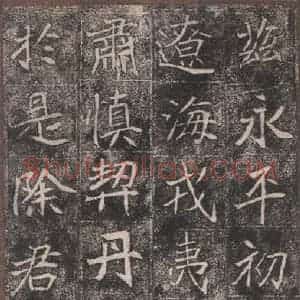 永平初
遼海戎夷
肅慎契丹
於是除君